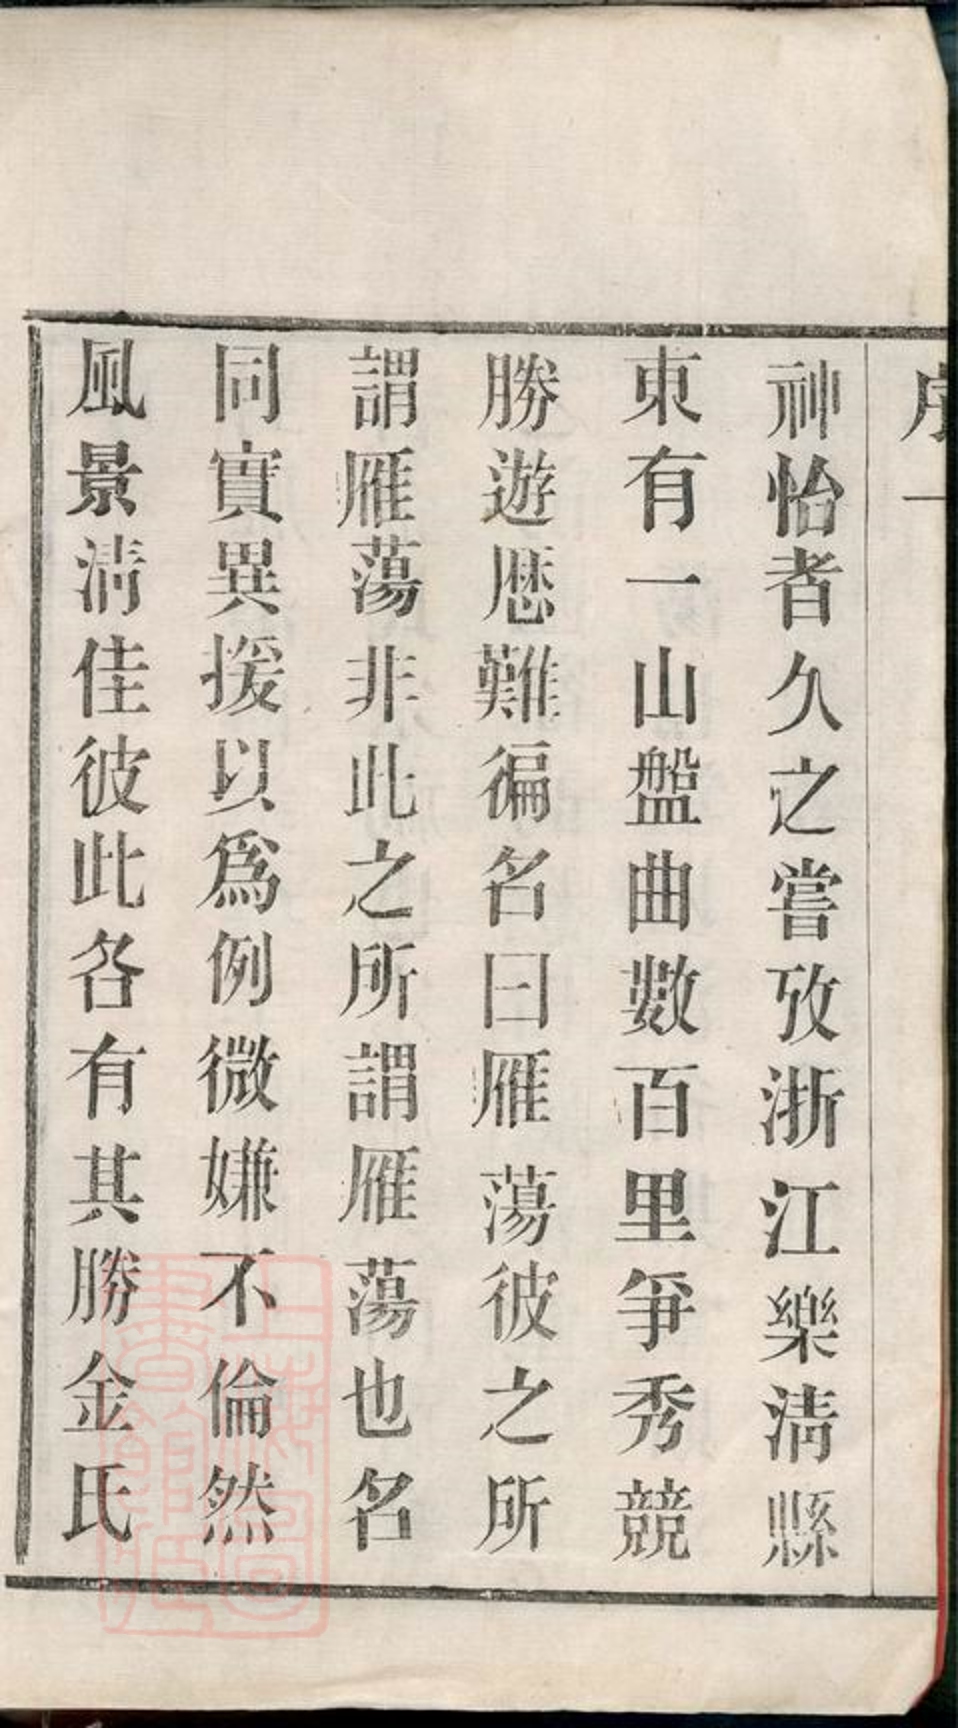 序一
神怡者久之嘗攷浙江樂淸縣
東有一山盤曲數百里爭秀競
勝遊厯難徧名曰雁蕩彼之所
謂雁蕩非此之所謂雁蕩也名
同實異援以爲例微嫌不倫然
風景淸佳彼此各有其勝金氏
上海圖書館藏